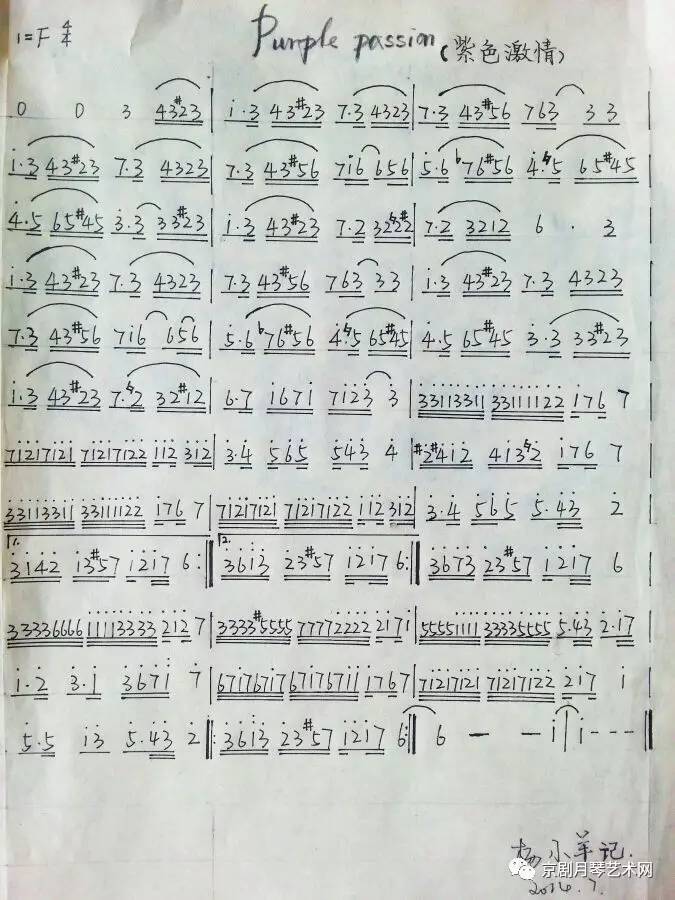 1=F 4/4 Purple passion (紫色激情)
0 0 3 43#23 | i·3 43#23 7·3 4323 | 7·3 43#56 763 3 3 |
i·3 43#23 7·3 4323 | 7·3 43#56 7i6 656 | 5·6 b76#56 4·♮5 65#45 |
4·5 65#45 3·3 33#23 | i·3 43#23 7·2 32♮2#2 | 7·2 3212 6 · 3 |
i·3 43#23 7·3 4323 | 7·3 43#56 763 33 | i·3 43#23 7·3 4323 |
7·3 43#56 7i6 656 | 5·6 b76#56 4·♮5 65#45 | 4·5 65#45 3·3 33#23 |
i·3 43#23 7·♮2 32#12 | 6·7 i67i 7i23 3 | 33113311 33111122 i76 7 |
7i2i7i2i 7i2i7i22 ii2 3i2 | 3·4 565 543 4 | #2#4i2 4i3♮2 i76 7 |
33113311 33111122 i76 7 | 7i2i7i2i 7i2i7i22 ii2 3i2 | 3·4 565 5·43 2 |
1. 3i42 i3#57 i2i7 6 :‖ 2. 36i3 23#57 i2i7 6 :‖ 3673 23#57 i2i7 6 |
33336666 iiii3333 2i2 7 | 3333#5555 77772222 2i7i | 5555iiii 33335555 5·43 2·i7 |
i·2 3·i 367i 7 | 67i767i7 67i767ii i767 | 7i2i7i2i 7i2i7i22 2i7 i |
5·5 i3 5·43 2 ‖: 36i3 23#57 i2i7 6 :‖ 6 — — i | i - - - ‖
杨小羊记.
京剧月琴艺术网
2014.7.